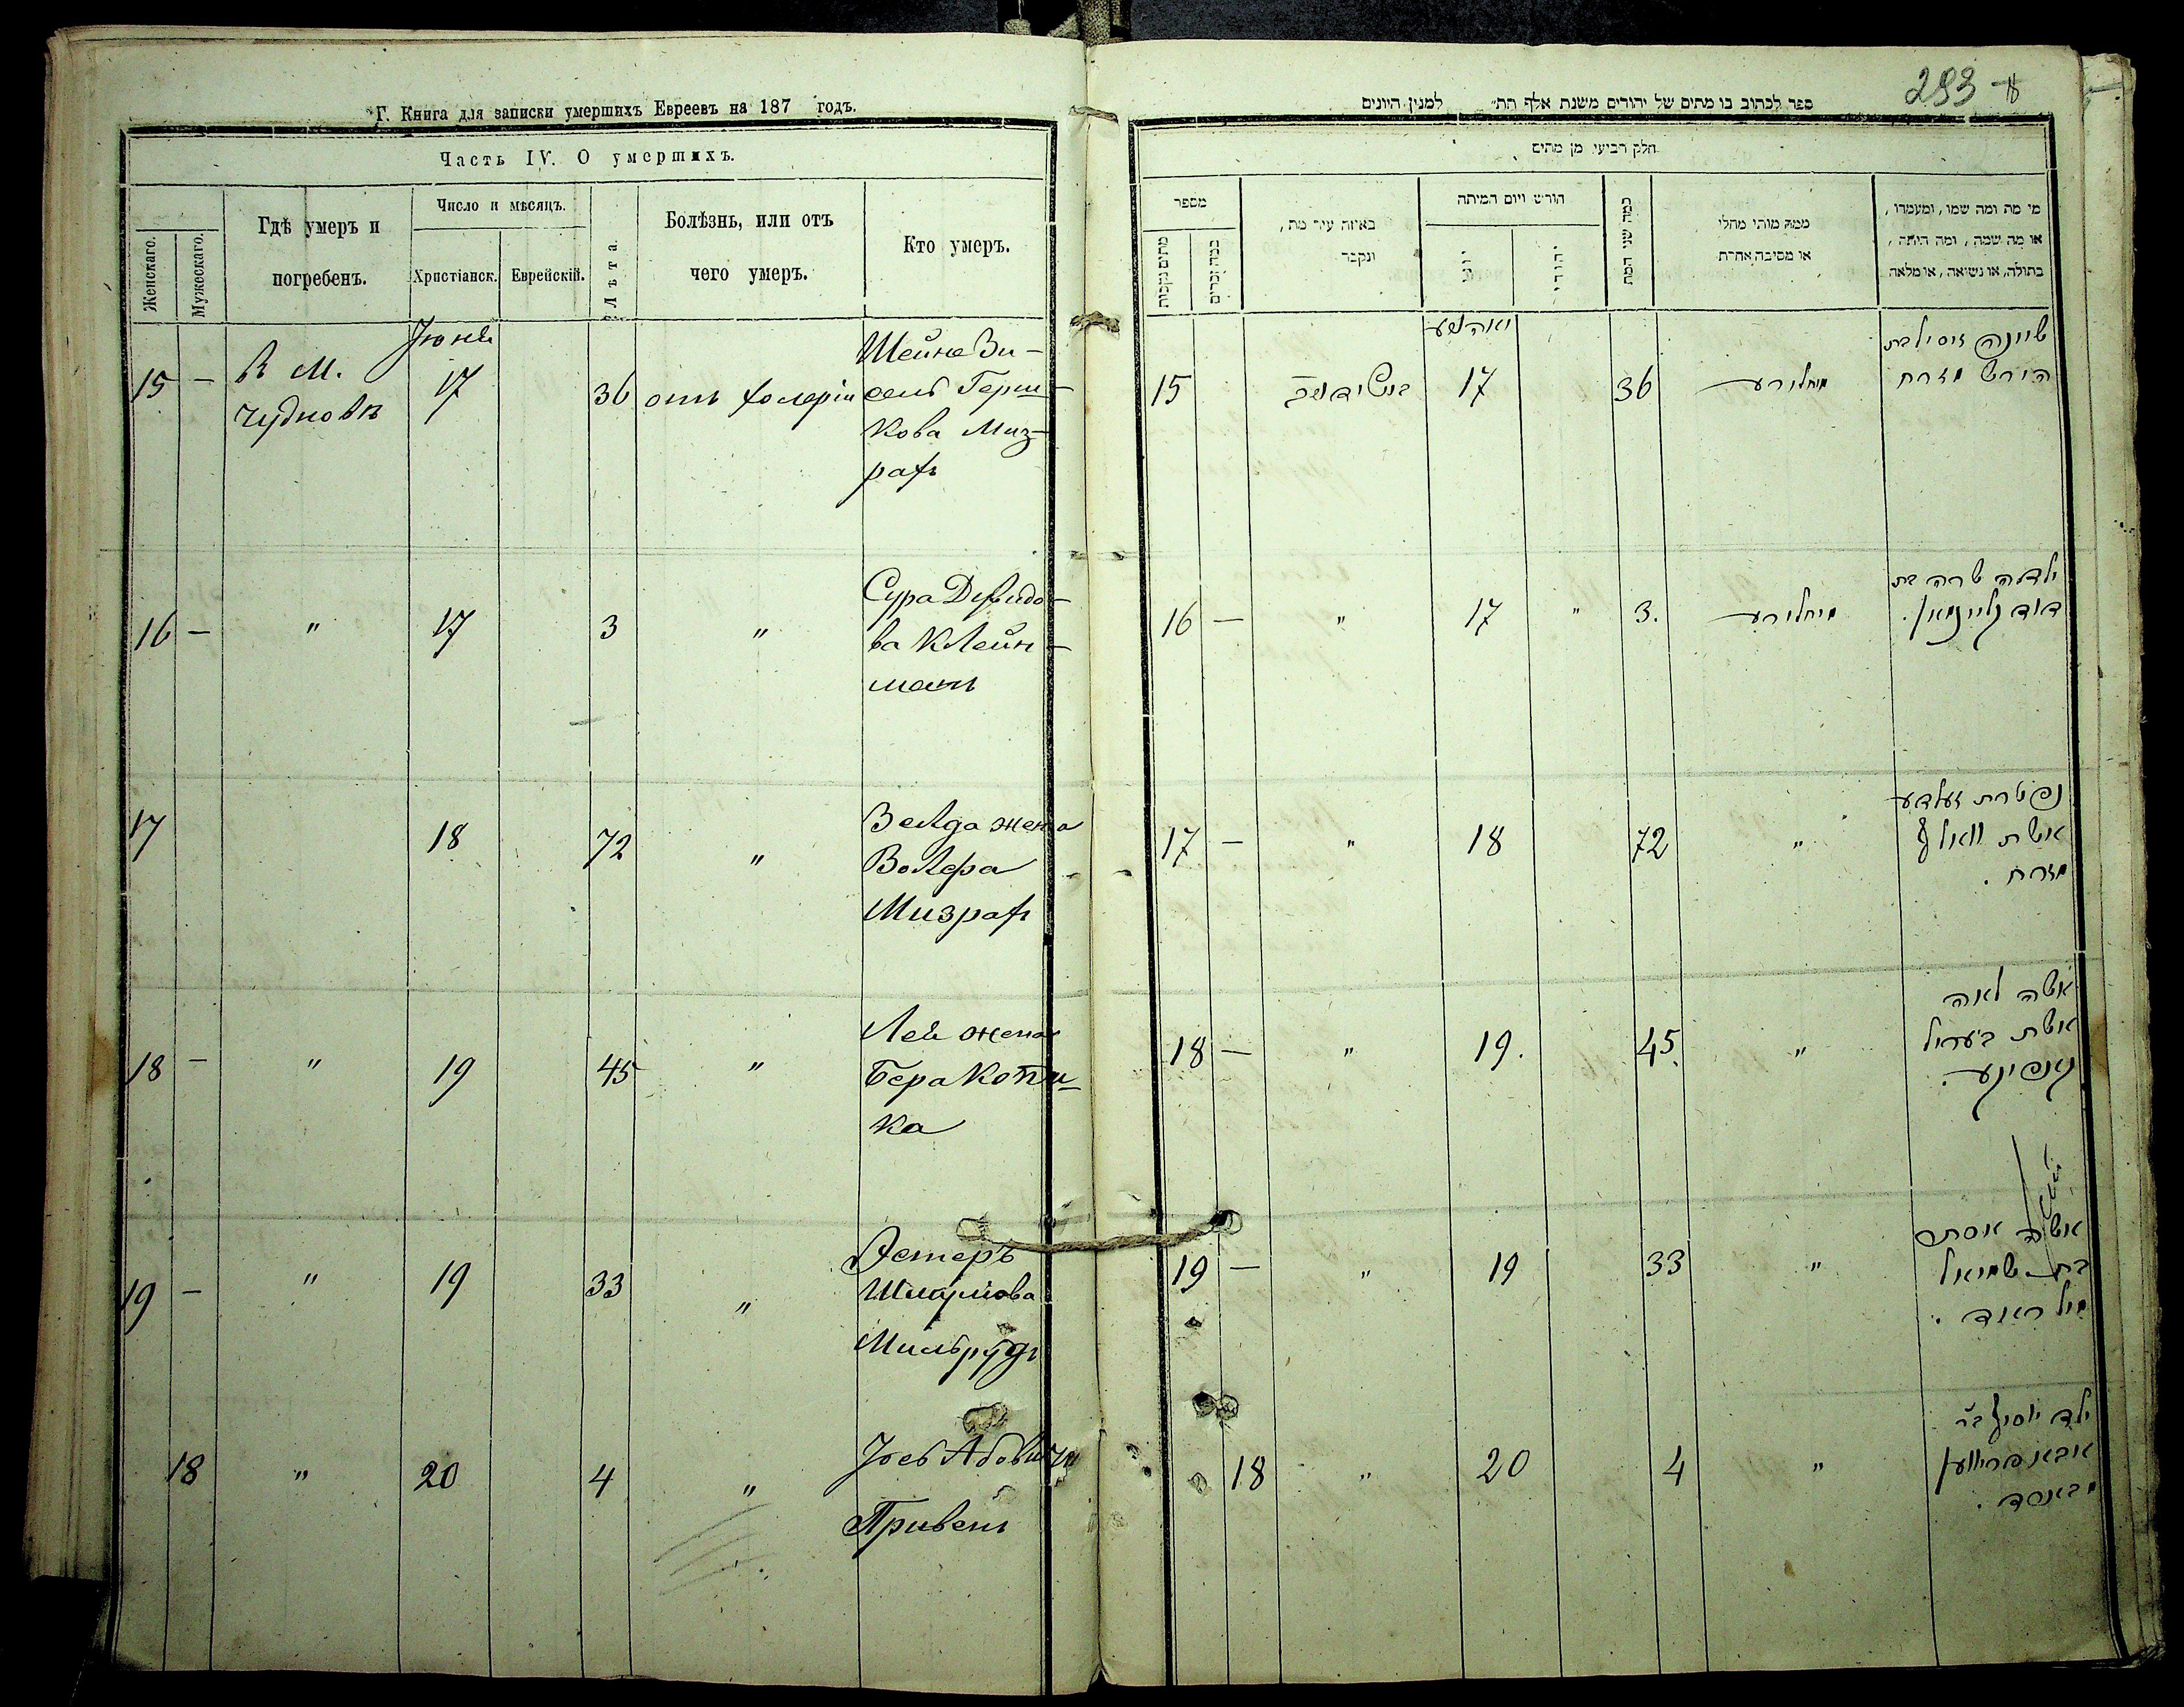 Г. Книга для записки умершихъ Евреевъ на 187 годъ.
Часть IV. О умершихъ.
Женскаго.
Мужескаго.
Гдѣ умеръ и
погребенъ.
Число и мѣсяцъ.
Христіанск.
Еврейскій.
Лѣта
Болѣзнь, или отъ
чего умеръ.
Кто умеръ.
15 —
в м.
Чудновѣ
Июня
17
36
отъ холеріи
Шейне Зи-
сель Герш-
кова Миз-
рахъ
16 — " 17 3 "
Сура Дувидо-
ва Клейн-
манъ
17 18 72 "
Зелда жена
Волфа
Мизрахъ
18 — " 19 45 "
Лея жена
Бера Копи-
ка
19 — " 19 33 "
Естеръ
Шмулиова
Мильрудъ
18 " 20 4 "
Іосъ Абовичъ
Привенъ
293
ספר לכתוב בו מתים של יהודים משנת אלף תת״ למנין היונים
חלק רביעי מן מתים
מספר
מתים נקבות
כמה זכרים
באיזה עיר מת,
ונקבר
חודש ויום המיתה
יוני
יהודי
כמה שני המת
ממה מותו מחלי
או מסיבה אחרת
מי מת ומה שמו, ומעמדו,
או מה שמה, ומה היתה,
בתולה, או נשואה, או מלאה
15 17 36 מחלירע
שיינה זיסיל בת
הירש מזרח
16 — " 17 " 3. מחלירע
ילדה שרה בת
דוד קליינמאן.
17 — " 18 72 "
נפטרת זעלדע
אשת וואלף
מזרח.
18 — " 19. 45. "
אשה לאה
אשת בעריל
19 — " 19 33 "
אשה אסתר
בת שמואל
מילראוד.
18 " 20 4 "
ילד יוסף בר
אבא פריווען